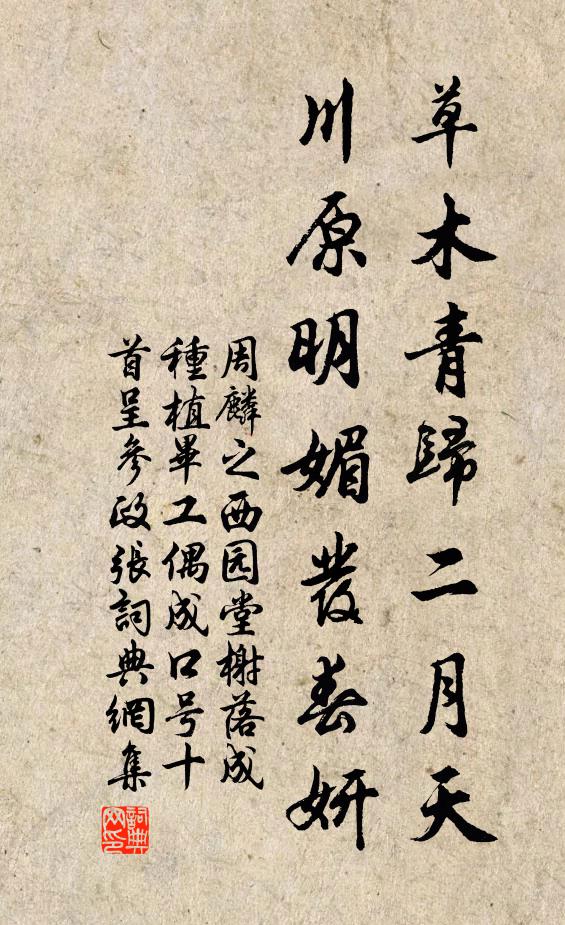 草木青歸二月天
川原明媚發春妍
周麟之西园堂榭落成
種植畢工偶成口号十
首呈參政張詞典網集
詞典网印